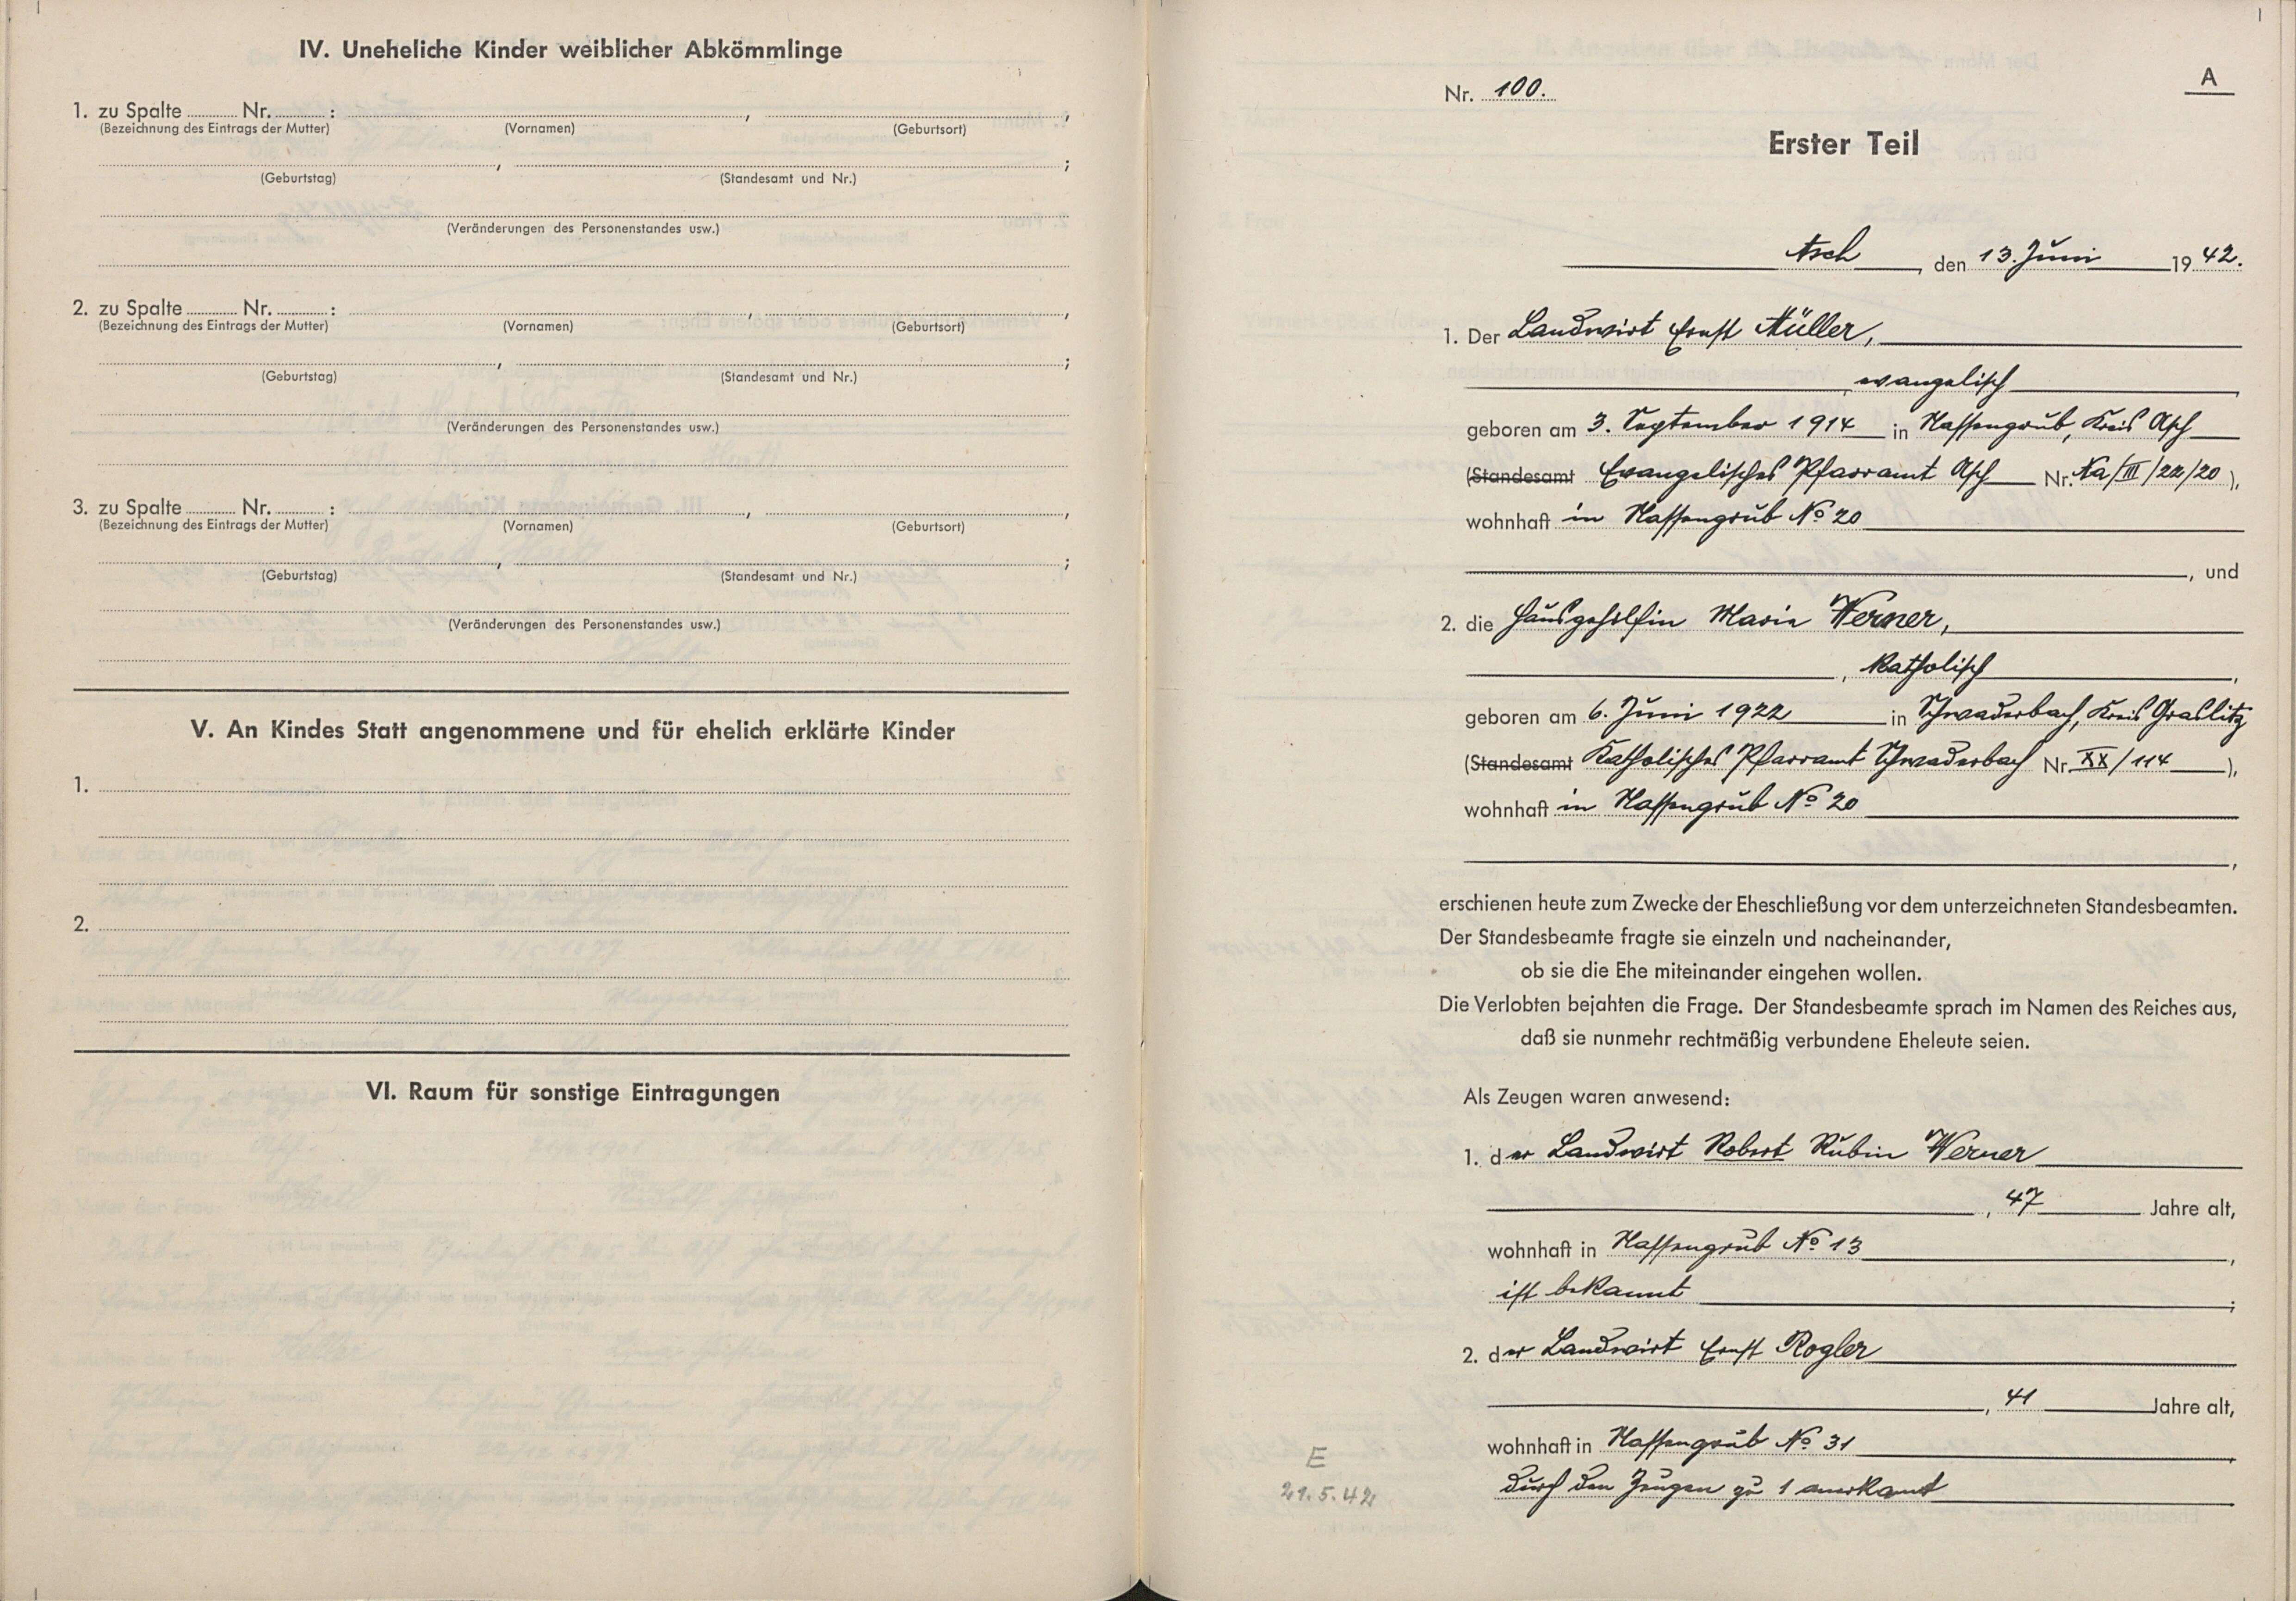 IV. Uneheliche Kinder weiblicher Abkömmlinge
1. zu Spalte ......... Nr. ......... :
(Bezeichnung des Eintrags der Mutter) (Vornamen) (Geburtsort)
(Geburtstag) (Standesamt und Nr.)
(Veränderungen des Personenstandes usw.)
2. zu Spalte ......... Nr. ......... :
(Bezeichnung des Eintrags der Mutter) (Vornamen) (Geburtsort)
(Geburtstag) (Standesamt und Nr.)
(Veränderungen des Personenstandes usw.)
3. zu Spalte ......... Nr. ......... :
(Bezeichnung des Eintrags der Mutter) (Vornamen) (Geburtsort)
(Geburtstag) (Standesamt und Nr.)
(Veränderungen des Personenstandes usw.)
V. An Kindes Statt angenommene und für ehelich erklärte Kinder
1.
2.
VI. Raum für sonstige Eintragungen
A
Nr. 100.
Erster Teil
Asch, den 13. Juni 1942.
1. Der Landwirt Ernst Müller,
, evangelisch,
geboren am 3. September 1914 in Nassengrub, Kreis Asch
(Standesamt Evangelisches Pfarramt Asch Nr. Na/III/22/20),
wohnhaft in Nassengrub No 20
, und
2. die Hausgehilfin Maria Werner,
, katholisch,
geboren am 6. Juni 1922 in Schwaderbach, Kreis Graslitz
(Standesamt Katholisches Pfarramt Schwaderbach Nr. XX/114),
wohnhaft in Nassengrub No 20
,
erschienen heute zum Zwecke der Eheschließung vor dem unterzeichneten Standesbeamten.
Der Standesbeamte fragte sie einzeln und nacheinander,
ob sie die Ehe miteinander eingehen wollen.
Die Verlobten bejahten die Frage. Der Standesbeamte sprach im Namen des Reiches aus,
daß sie nunmehr rechtmäßig verbundene Eheleute seien.
Als Zeugen waren anwesend:
1. der Landwirt Robert Rubin Werner
, 47 Jahre alt,
wohnhaft in Nassengrub No 13,
ist bekannt;
2. der Landwirt Ernst Rogler
, 41 Jahre alt,
wohnhaft in Nassengrub No 31,
durch den Zeugen zu 1 anerkannt
E
21.5.42